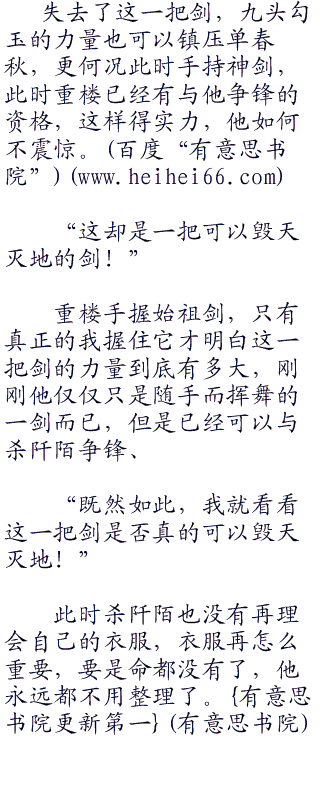 失去了这一把剑，九头勾
玉的力量也可以镇压单春
秋，更何况此时手持神剑，
此时重楼已经有与他争锋的
资格，这样得实力，他如何
不震惊。(百度“有意思书
院”)(www.heihei66.com)
“这却是一把可以毁天
灭地的剑！”
重楼手握始祖剑，只有
真正的我握住它才明白这一
把剑的力量到底有多大，刚
刚他仅仅只是随手而挥舞的
一剑而已，但是已经可以与
杀阡陌争锋、
“既然如此，我就看看
这一把剑是否真的可以毁天
灭地！”
此时杀阡陌也没有再理
会自己的衣服，衣服再怎么
重要，要是命都没有了，他
永远都不用整理了。{有意思
书院更新第一}(有意思书院)